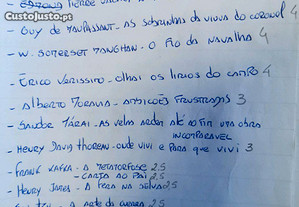 CustoJusto.pt
- Guy de Maupassant - As sobrinhas da viuva do coronel 4
- W. Somerset Maugham - O Fio da Navalha 4
- Érico Veríssimo - Olhai os lírios do campo 4
- Alberto Moravia - Ambições Frustradas 3
- Sandor Márai - As velas ardem até ao fim uma obra
incomparavel
- Henry David Thoreau - onde vivi e para que vivi 3
- Frank Kafka - A metamorfose 2,5
- Carta ao pai 2,5
- Henry James - A fera na selva 2,5
- A arte da guerra 2,5